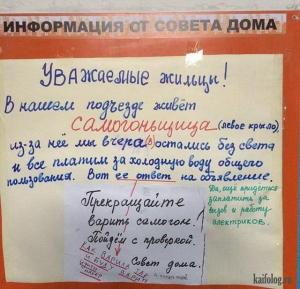 ИНФОРМАЦИЯ ОТ СОВЕТА ДОМА
Уважаемые жильцы!
В нашем подъезде живёт
самогоньщица (левое крыло)
из-за неё мы вчера(8) остались без света
и все платим за холодную воду общего
пользования. Вот ее ответ на объявление.
Да, ещё придется
заплатить за
вызов и работу
электриков.
Прекращайте
варить самогон.
Пойдём с проверкой.
Совет дома.
КАК ВАРИЛА ТАК
И БУДУ ВАРИТЬ
kaifolog.ru